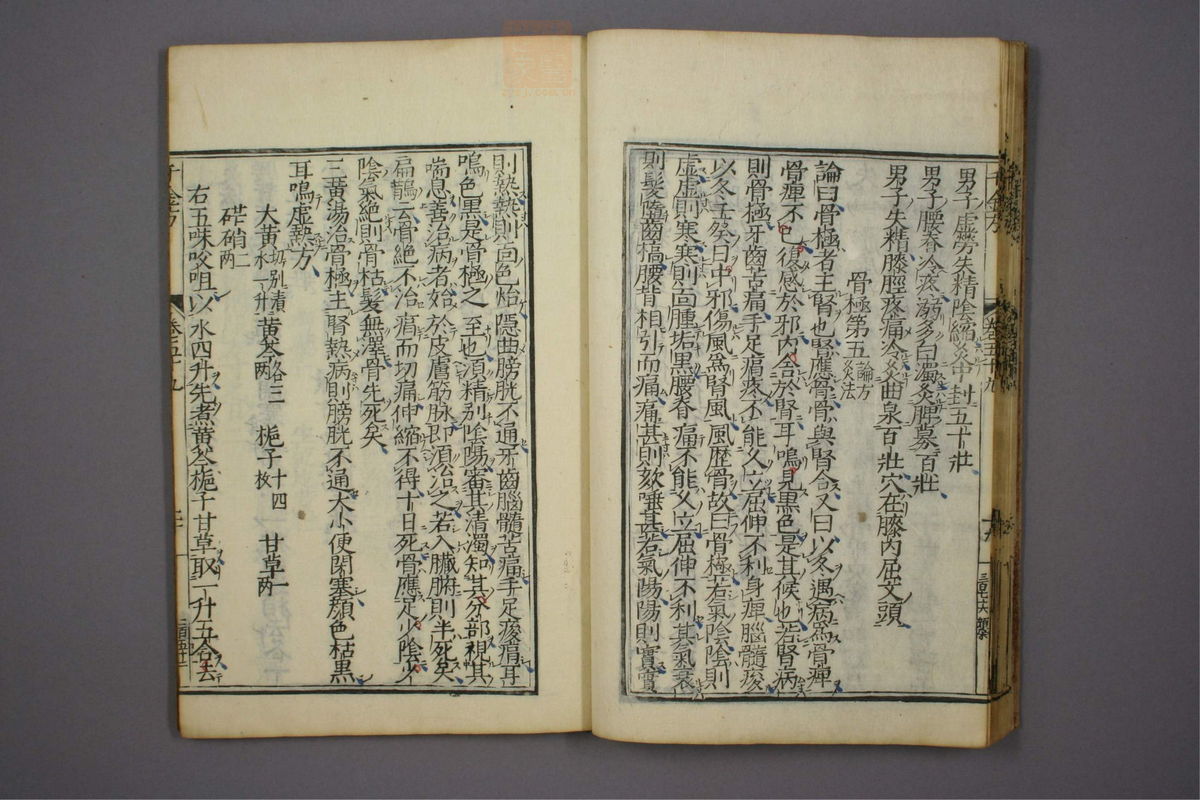 男子虛勞失精陰縮灸中封五十壯
男子腰脊冷疼溺多白濁灸脾募百壯
男子失精膝脛疼痛冷灸曲泉百壯穴在膝內屈文頭
骨極第五論方灸法
論曰骨極者主腎也腎應骨骨與腎合又曰以冬遇病為骨痺
骨痺不已復感於邪內舍於腎耳鳴見黑色是其候也若腎病
則骨極牙齒苦痛手足痛疼不能久立屈伸不利身痺腦髓痠
以冬壬癸日中邪傷風為腎風風歷骨故曰骨極若氣陰陰則
虛虛則寒寒則面腫垢黑腰脊痛不能久立屈伸不利其氣衰
則髮墮齒槁腰背相引而痛痛甚則欬唾甚若氣陽陽則實實
則熱熱則面色炲隱曲膀胱不通牙齒腦髓苦痛手足痠痟耳
鳴色黑是骨極之至也須精別陰陽審其清濁知其分部視其
喘息善治病者始於皮膚筋脉即須治之若入臟腑則半死矣
扁鵲云骨絕不治痟而切痛伸縮不得十日死骨應足少陰少
陰氣絕則骨枯髮無澤骨先死矣
三黃湯治骨極主腎熱病則膀胱不通大小便閉塞顏色枯黑
耳鳴虛熱方
大黃切別漬水一升 黃芩各三兩 梔子十四枚 甘草一兩
硭硝二兩
右五味㕮咀以水四升先煮黃芩梔子甘草取一升五合去
千金方 卷之五十九